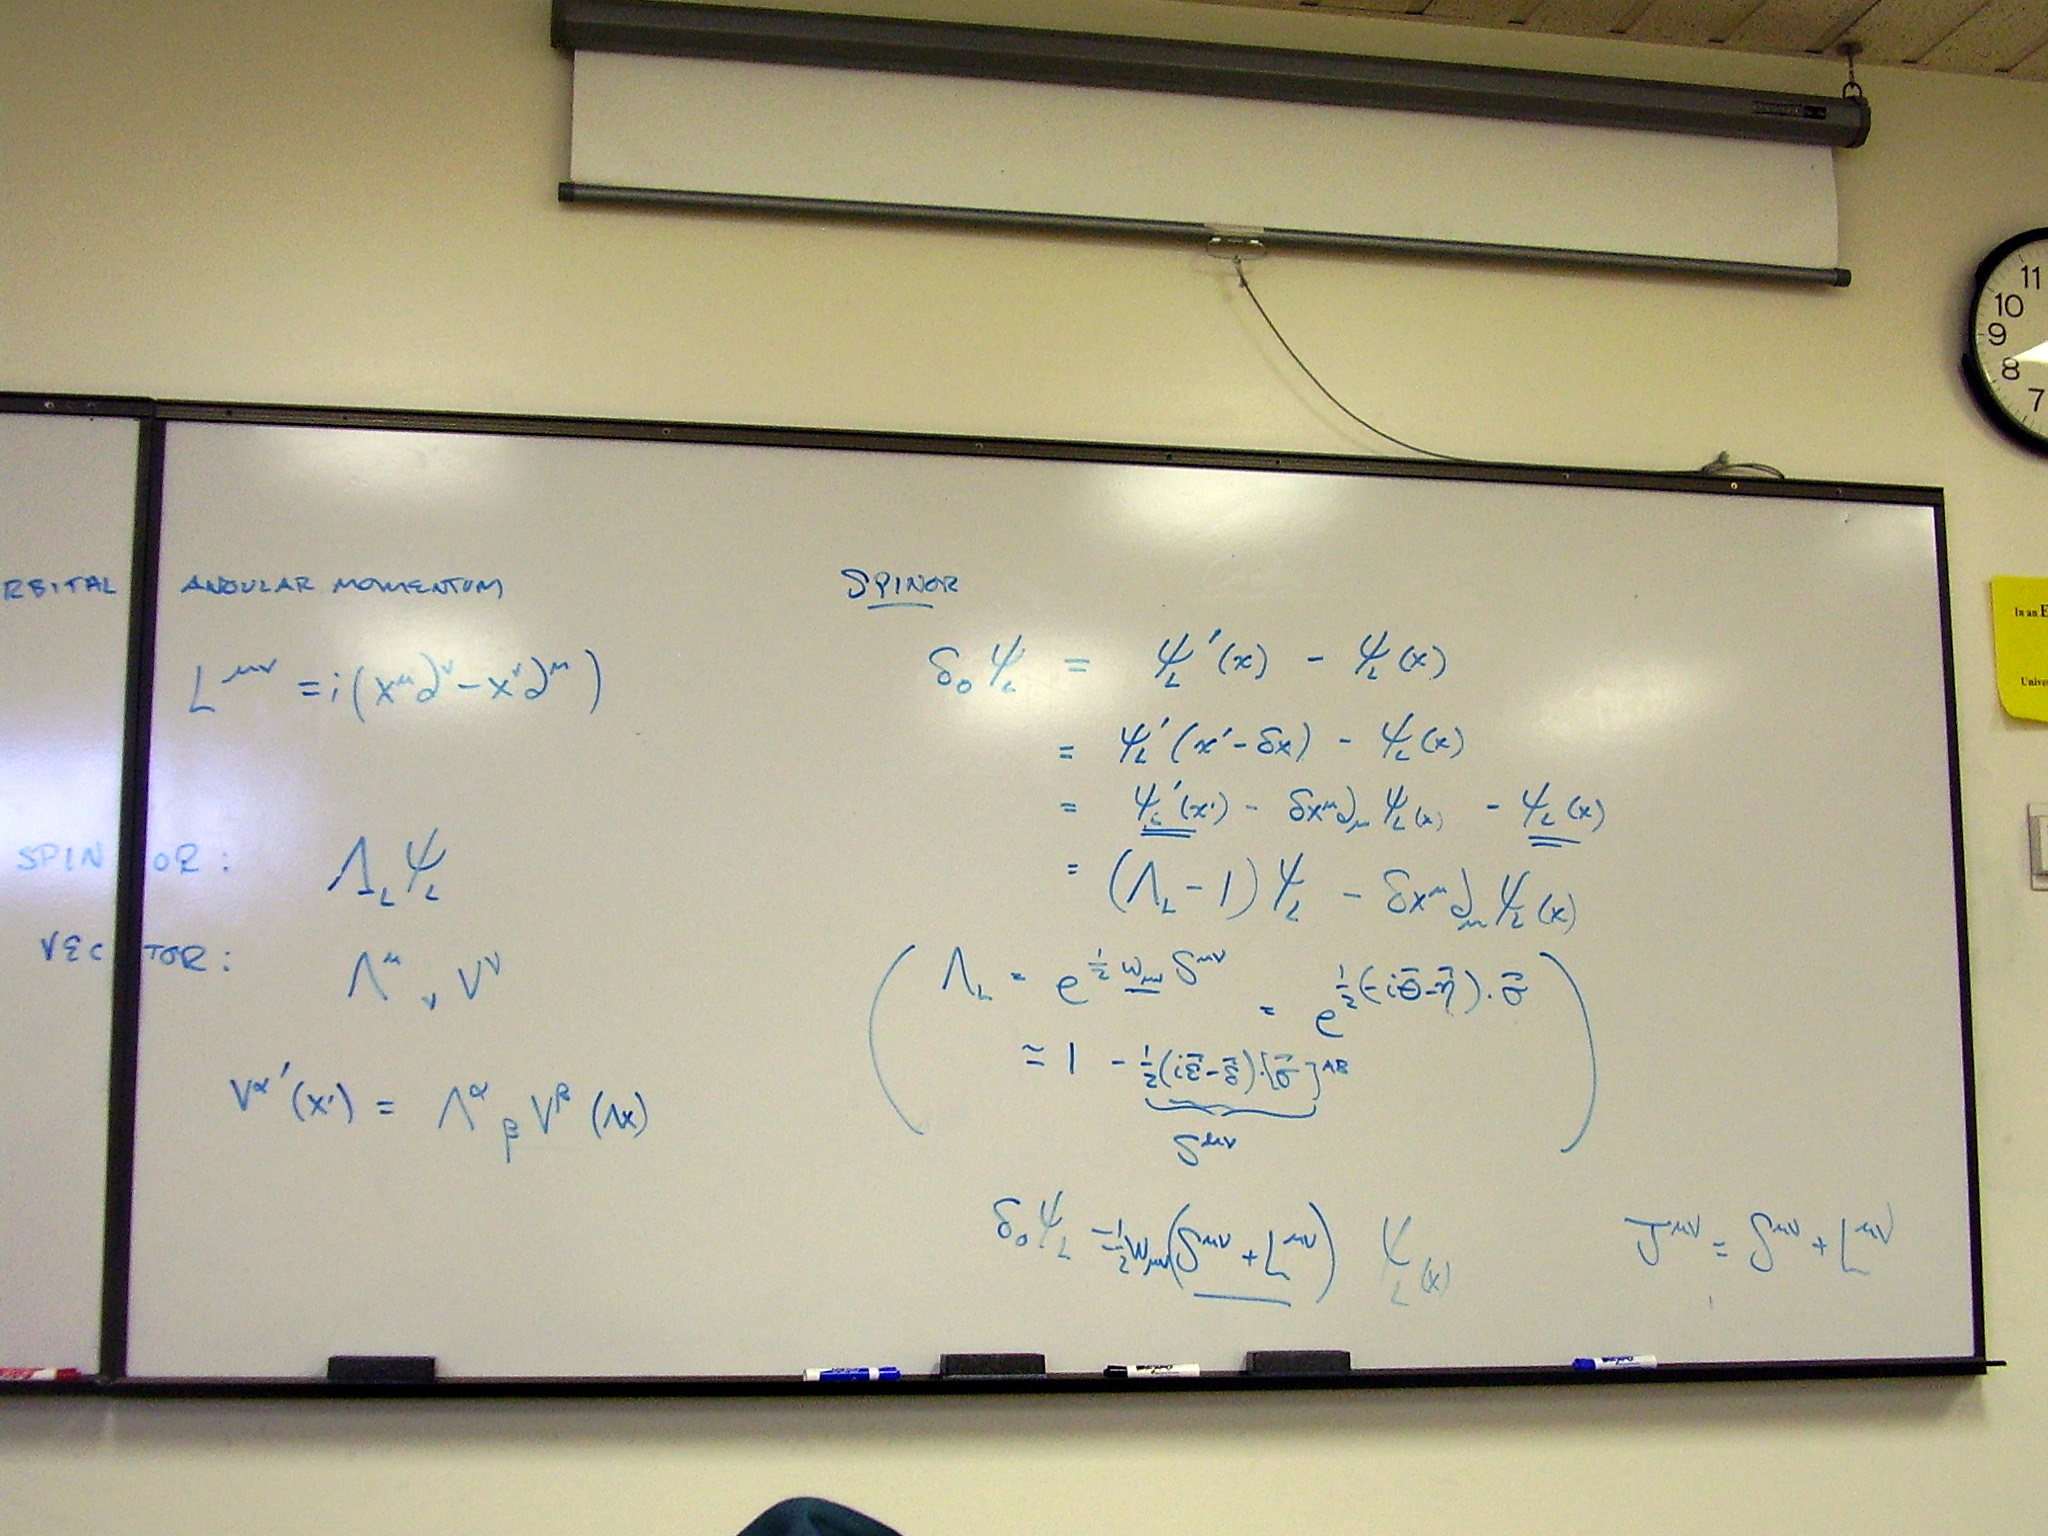 RBITAL ANGULAR MOMENTUM
L^{μν} = i(x^μ∂^ν - x^ν∂^μ)
SPINOR: Λ_L ψ_L
VECTOR: Λ^μ_ν V^ν
V^α'(x') = Λ^α_β V^β (Λx)
SPINOR
δ_0 ψ_L = ψ_L'(x) - ψ_L(x)
= ψ_L'(x' - δx) - ψ_L(x)
= ψ_L'(x') - δx^μ∂_μ ψ_L(x) - ψ_L(x)
= (Λ_L - 1) ψ_L - δx^μ ∂_μ ψ_L(x)
( Λ_L = e^{½ ω_{μν} S^{μν}} = e^{½(-iθ⃗ - η⃗)·σ⃗}
≈ 1 - ½(iε⃗ - δ⃗)·[σ⃗]^{AB} )
S^{μν}
δ_0 ψ_L = -½ ω_{μν}(S^{μν} + L^{μν}) ψ_L(x)
J^{μν} = S^{μν} + L^{μν}
11
10
9
8
7
In an E
Unive